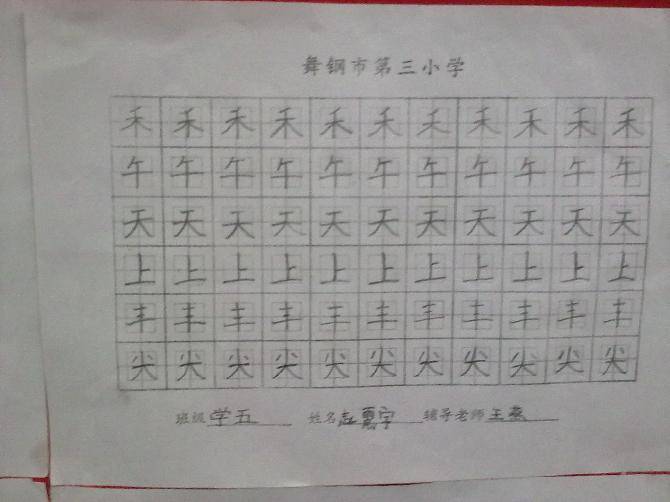 舞钢市第三小学
禾禾禾禾禾禾禾禾禾禾禾
午午午午午午午午午午午
天天天天天天天天天天天
上上上上上上上上上上上
丰丰丰丰丰丰丰丰丰丰丰
尖尖尖尖尖尖尖尖尖尖尖
班级 学五 姓名 辅导老师 王燕